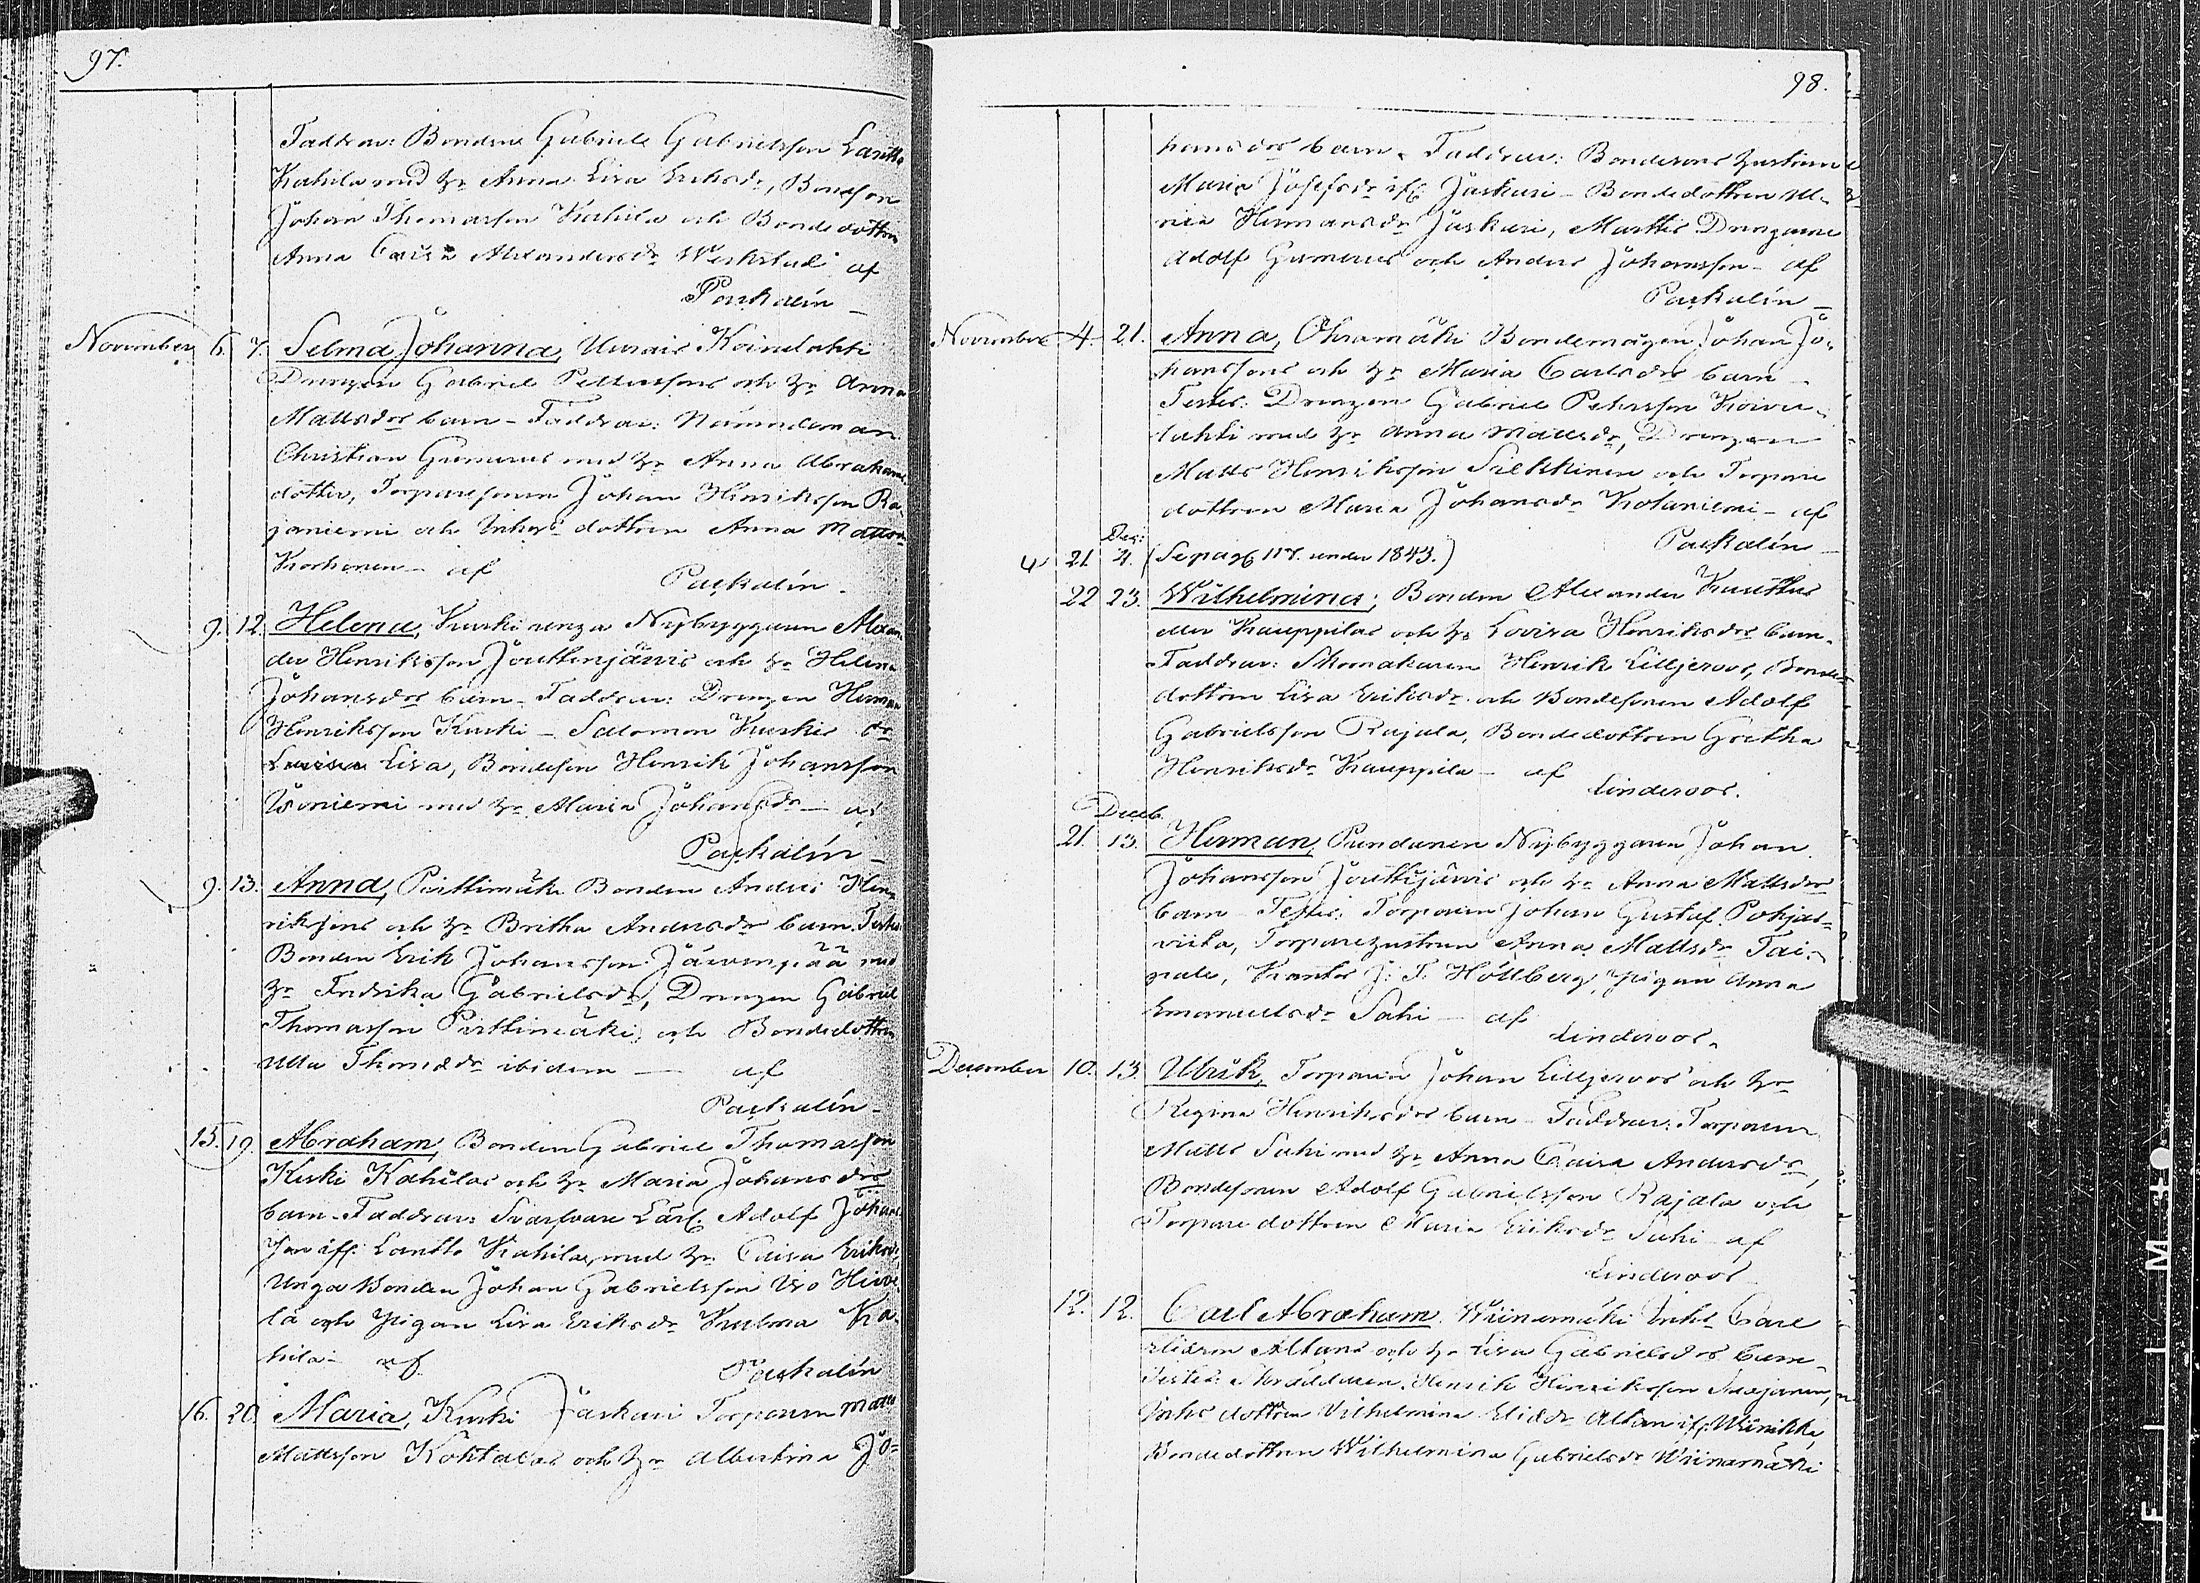 97.
Faddrar: Bonden Gabriel Gabrielsson Lantto
Kahila med h:u Anna Lisa Eriksdr, Bondeson
Johan Thomasson Kahila och Bondedottren
Anna Caisa Alexandersdr Werkstad af
Paskalin
November 6. 7. Selma Johanna, Uurais Koirulahti
Drengen Gabriel Petterssons och h:u Anna
Mattsdrs barn – Faddrar: Nämndeman
Christian Gumerus med h:u Anna Abrahams
dotter, Torparesonen Johan Henriksson Ra-
janiemi och Inhys dottren Anna Mattsdr
Korhonen – af
Paskalin
9. 12. Helena, Kurki unga Nybyggaren Alexan
der Henriksson Jouttenjärvis och h:u Helena
Johansdrs barn – Faddrar: Drengen Herman
Henriksson Kurki – Salomon Kurkis dr
Lisa, Bondeson Henrik Johansson
Isoniemi med h:u Maria Johansdr – af
Paskalin
9. 13. Anna, Pirttimäki Bonden Anders Hen
rikssons och h:u Britha Andersdr barn. Testes
Bonden Erik Johansson Järvenpää med
h:u Fredrika Gabrielsdr, Drengen Gabriel
Thomasson Pirttimäki, och Bondedottren
Ulla Thomædr ibidem — af
Paskalin
15. 19. Abraham, Bonden Gabriel Thomasson
Keski Kahilas och h:u Maria Johansdrs
barn. Faddrar: Svarfvare Lärl. Adolf Johans
son ifr. Lantto Kahila, med h:u Caisa Eriksdr,
Unga Bonden Johan Gabrielsson Iso Hirve
lä och Pigan Lisa Eriksdr Kulma Ka-
hila – af
Paskalin
16. 20. Maria, Kurki Jäskäri Torparen Matts
Mattsson Kohtalas och h:u Albertina Jo-
98.
hansdrs barn. Faddrar: Bondesons hustrun
Maria Josefsdr ifr. Jäskäri – Bondedottren Ma-
ria Hermansdr Jäskäri, Drengarne
Adolf Gumerus och Anders Johansson – af
Paskalin
November 4. 21. Anna, Ohramäki Bondemågen Johan Jo-
hanssons och h:u Maria Carlsdrs barn –
Testes: Drengen Gabriel Petersson Koiru-
lahti med h:u Anna Mattsdr, Drengen
Matts Henriksson Silkkinen och Torpare
dottren Maria Johansdr Kotaniemi – af
Paskalin
Dec:
21. 4. (Se pag 117. under 1843.)
22 23. Wilhelmina, Bonden Alexander
eller Kauppilas och h:u Lovisa Henriksdrs barn.
Faddrar: Skomakaren Henrik Lilljeroos, Bonde
dottren Lisa Eriksdr och Bondesonen Adolf
Gabrielsson Rajala, Bondedottren Gretha
Henriksdr Kauppila – af
Linderoos.
Decib.
21. 13. Herman, Pundanen Nybyggaren Johan
Johansson Jouttijärvis och h:u Anna Mattsdrs
barn – Testes: Torparen Johan Gustaf Pohjas-
viita, Torparehustrun Anna Mattsdr Tai-
pale, Kantor J: F: Höllberg, Pigan Anna
Emanuelsdr Sahi – af
Linderoos.
December 10. 13. Ulrik, Torparen Johan Lilljeroos och h:u
Regina Henriksdrs barn – Faddrar: Torparen
Matts Sahi med h:u Anna Caisa Andersdr,
Bondesonen Adolf Gabrielsson Rajala och
Torparedottren Maria Eriksdr Sahi – af
Linderoos
12. 12. Carl Abraham, Wiinamäki Inhs Carl
Eliæson Altans och h:u Lisa Gabrielsdrs barn –
Testes: Henrik Henriksson
Inhs dottren Vilhelmina Eliædr Altan ifr.
Bondedottren Wilhelmina Gabrielsdr Wiinamäki